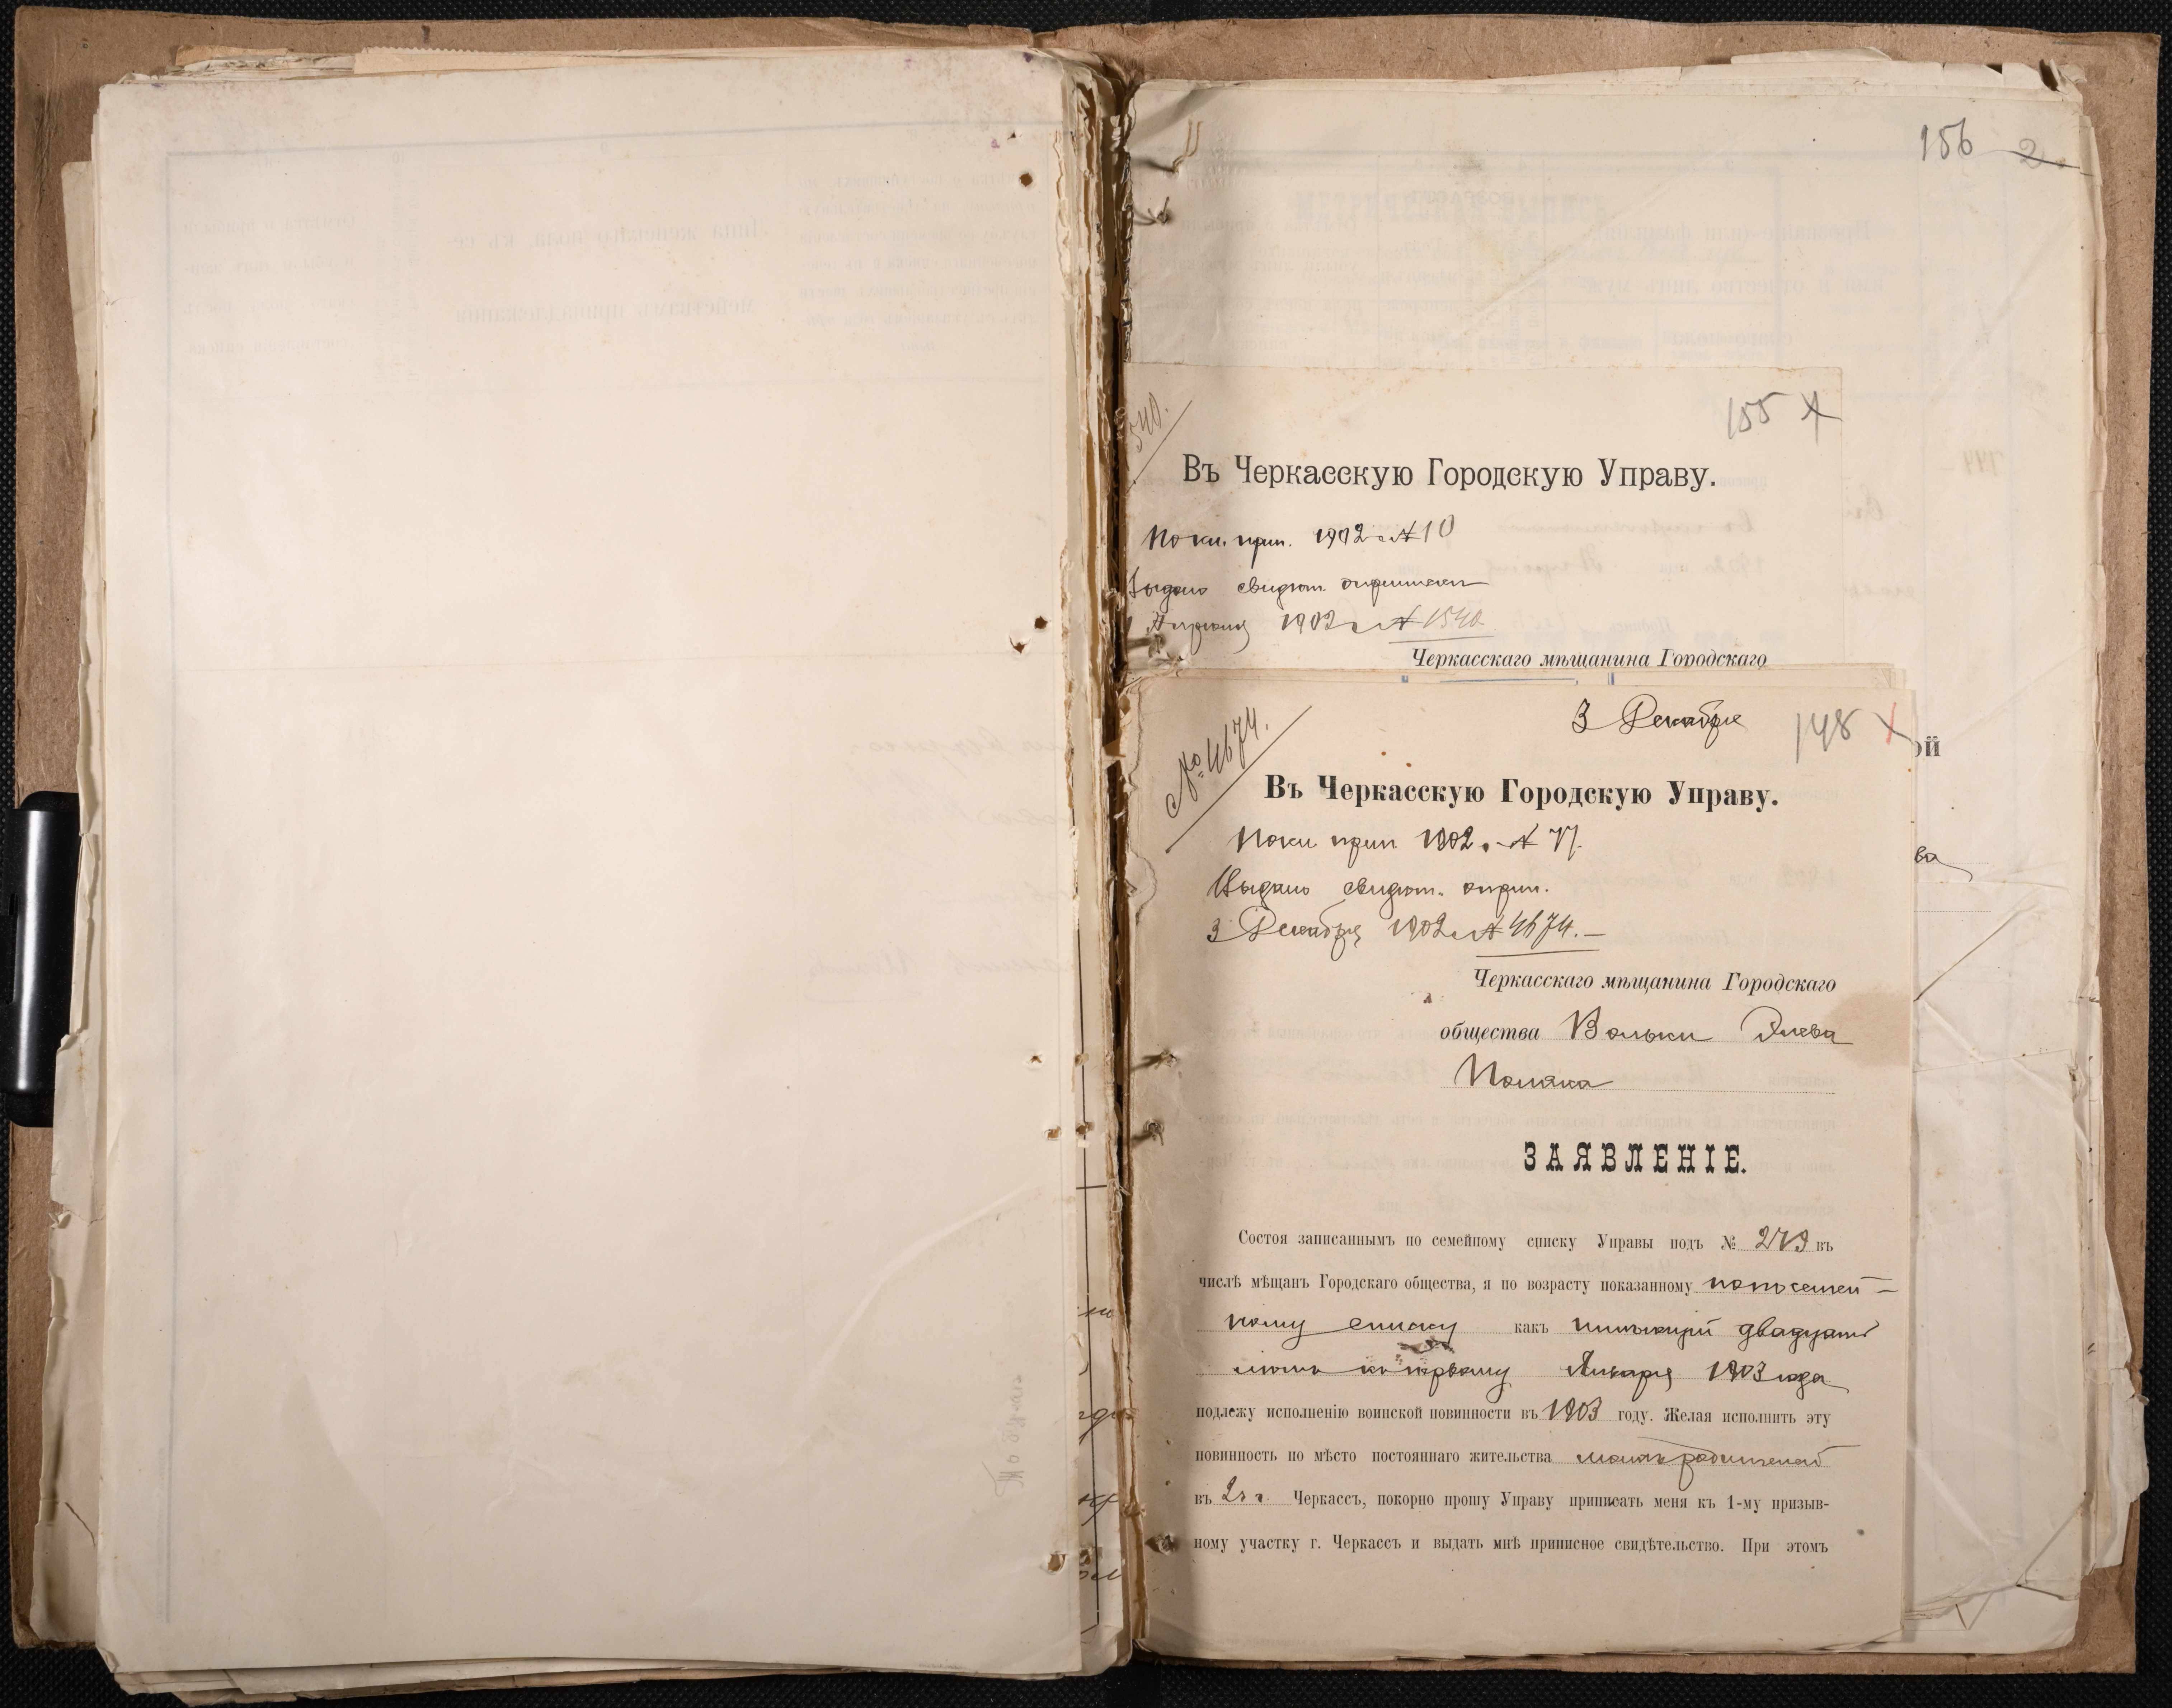 156 2
155
540.
Въ Черкасскую Городскую Управу.
1902 г. № 10
свидѣт.
1902 г. № 1540
Черкасскаго мѣщанина Городскаго
3 Декабря 148
№ 4674.
Въ Черкасскую Городскую Управу.
прип 1902 г. № 77.
Выдано свидѣт. о прип.
3 Декабря 1902 г. № 4674.—
Черкасскаго мѣщанина Городскаго
общества Вольки
Поляка
ЗАЯВЛЕНІЕ.
Состоя записаннымъ по семейному списку Управы подъ № 279 въ
числѣ мѣщанъ Городскаго общества, я по возрасту показанному по посемей-
ному списку какъ имѣющій двадцать
лѣтъ къ первому Января 1903 года
подлежу исполненію воинской повинности въ 1903 году. Желая исполнить эту
повинность по мѣсто постояннаго жительства моихъ родителей
въ г. Черкассъ, покорно прошу Управу приписать меня къ 1-му призыв-
ному участку г. Черкассъ и выдать мнѣ приписное свидѣтельство. При этомъ